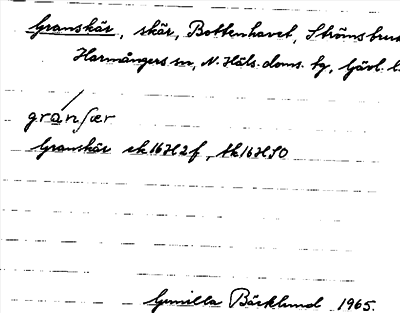 Granskär, skär, Bottenhavet, Ströms bruk
Harmångers sn, N. Häls. doms. tg, Gävl. l.
gránʃær
Granskär ek16H2f, tk16HSO
Gunilla Bäcklund 1965.